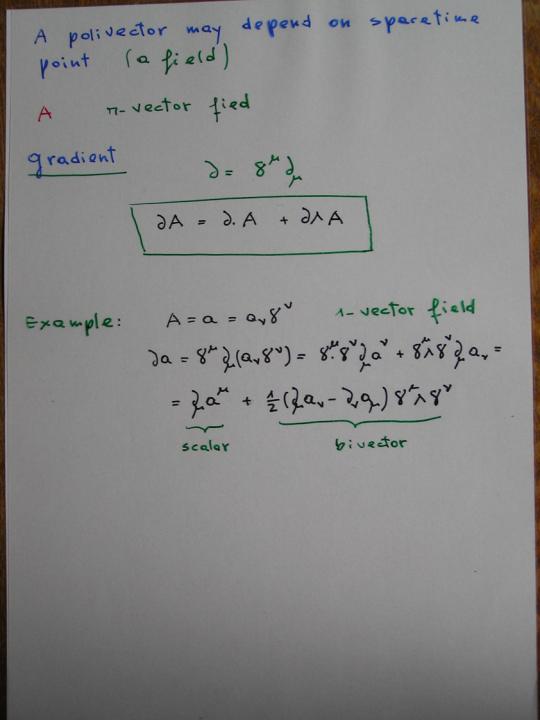 A polivector may depend on spacetime
point (a field)
A n-vector fied
gradient
∂ = γ^μ ∂_μ
∂A = ∂·A + ∂∧A
Example: A = a = a_ν γ^ν 1-vector field
∂a = γ^μ ∂_μ (a_ν γ^ν) = γ^μ·γ^ν ∂_μ a^ν + γ^μ∧γ^ν ∂_μ a_ν =
= ∂_μ a^μ + 1/2 (∂_μ a_ν - ∂_ν a_μ) γ^μ∧γ^ν
scalar bivector